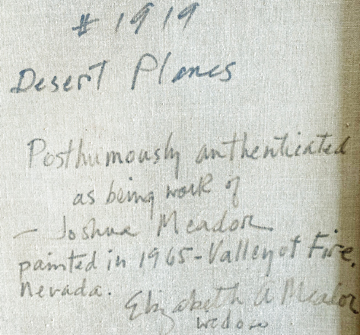 # 1919
Desert Planes
Posthumously authenticated
as being work of
- Joshua Meador
painted in 1965 - Valley of Fire,
Nevada.
Elizabeth A Meador
widow